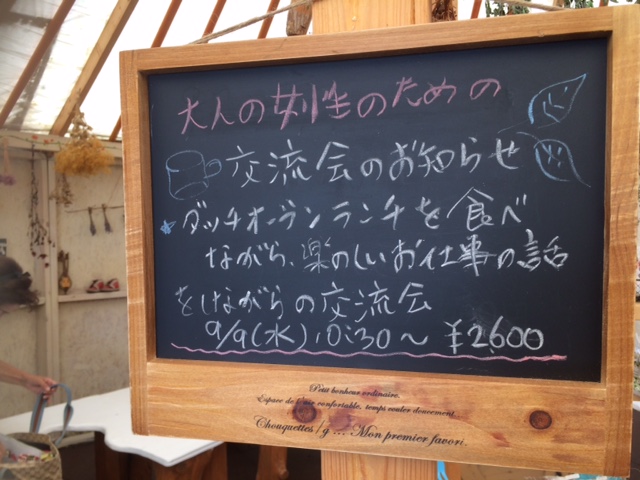 大人の女性のための
交流会のお知らせ
ダッチオーブンランチを食べ
ながら、楽のしいお仕事の話
をしながらの交流会
9/9(水)10:30〜 ¥2,600
Petit bonheur ordinaire.
Espace de l'air confortable, temps couler doucement.
Chouquettes/g ... Mon premier favori.